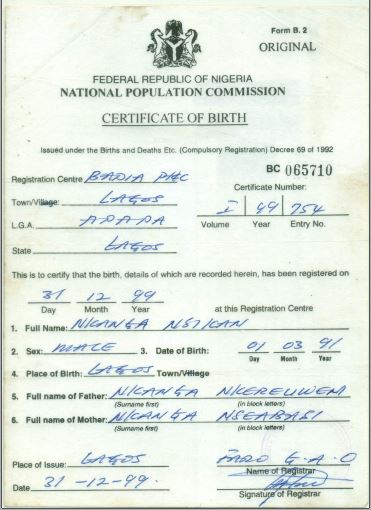 Form B. 2
ORIGINAL
FEDERAL REPUBLIC OF NIGERIA
NATIONAL POPULATION COMMISSION
CERTIFICATE OF BIRTH
Issued under the Births and Deaths Etc. (Compulsory Registration) Decree 69 of 1992
BC 065710
Registration Centre BADIA PHC
Certificate Number:
Town/Village: LAGOS
I 99 754
L.G.A. APAPA
Volume Year Entry No.
State LAGOS
This is to certify that the birth, details of which are recorded herein, has been registered on
31 12 99
Day Month Year at this Registration Centre
1. Full Name: NKANGA NSIKAN
2. Sex: MALE 3. Date of Birth: 01 03 91
Day Month Year
4. Place of Birth: LAGOS Town/Village
5. Full name of Father: NKANGA NKEREUWEM
(Surname first) (in block letters)
6. Full name of Mother: NKANGA NSEABASI
(Surname first) (in block letters)
Place of Issue: LAGOS G.A.O
Name of Registrar
Date 31-12-99.
Signature of Registrar